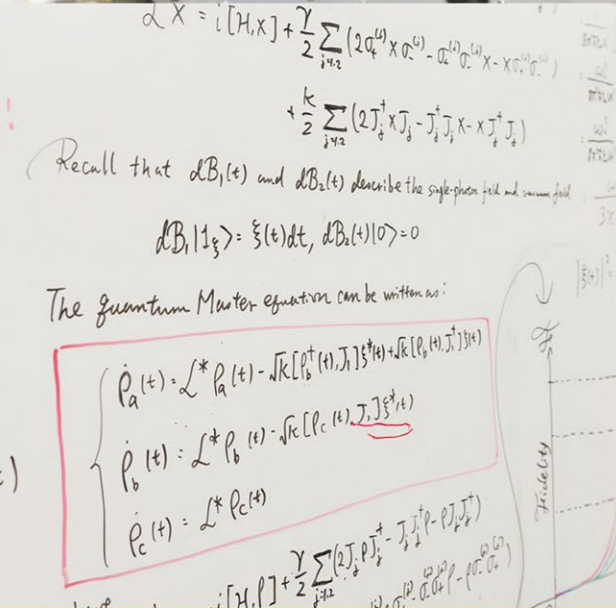 ℒX = i[H,X] + γ/2 Σ_{j=1,2} (2σ₊^{(j)} X σ₋^{(j)} - σ₊^{(j)} σ₋^{(j)} X - X σ₊^{(j)} σ₋^{(j)})
+ k/2 Σ_{j=1,2} (2J_j^† X J_j - J_j^† J_j X - X J_j^† J_j)
Recall that dB₁(t) and dB₂(t) describe the single-photon field and vacuum field
dB₁|1_ξ> = ξ(t)dt, dB₂(t)|0> = 0
The quantum Master equation can be written as:
ρ̇_a(t) = ℒ* ρ_a(t) - √k[ρ_b^†(t), J₁]ξ*(t) + √k[ρ_b(t), J₁^†]ξ(t)
ρ̇_b(t) = ℒ* ρ_b(t) - √k[ρ_c(t), J₁]ξ*(t)
ρ̇_c(t) = ℒ* ρ_c(t)
i[H,ρ] + γ/2 Σ_{j=1,2} (2J_j ρ J_j^† - J_j J_j^† ρ - ρ J_j J_j^†)
|ξ(t)|²
Fidelity